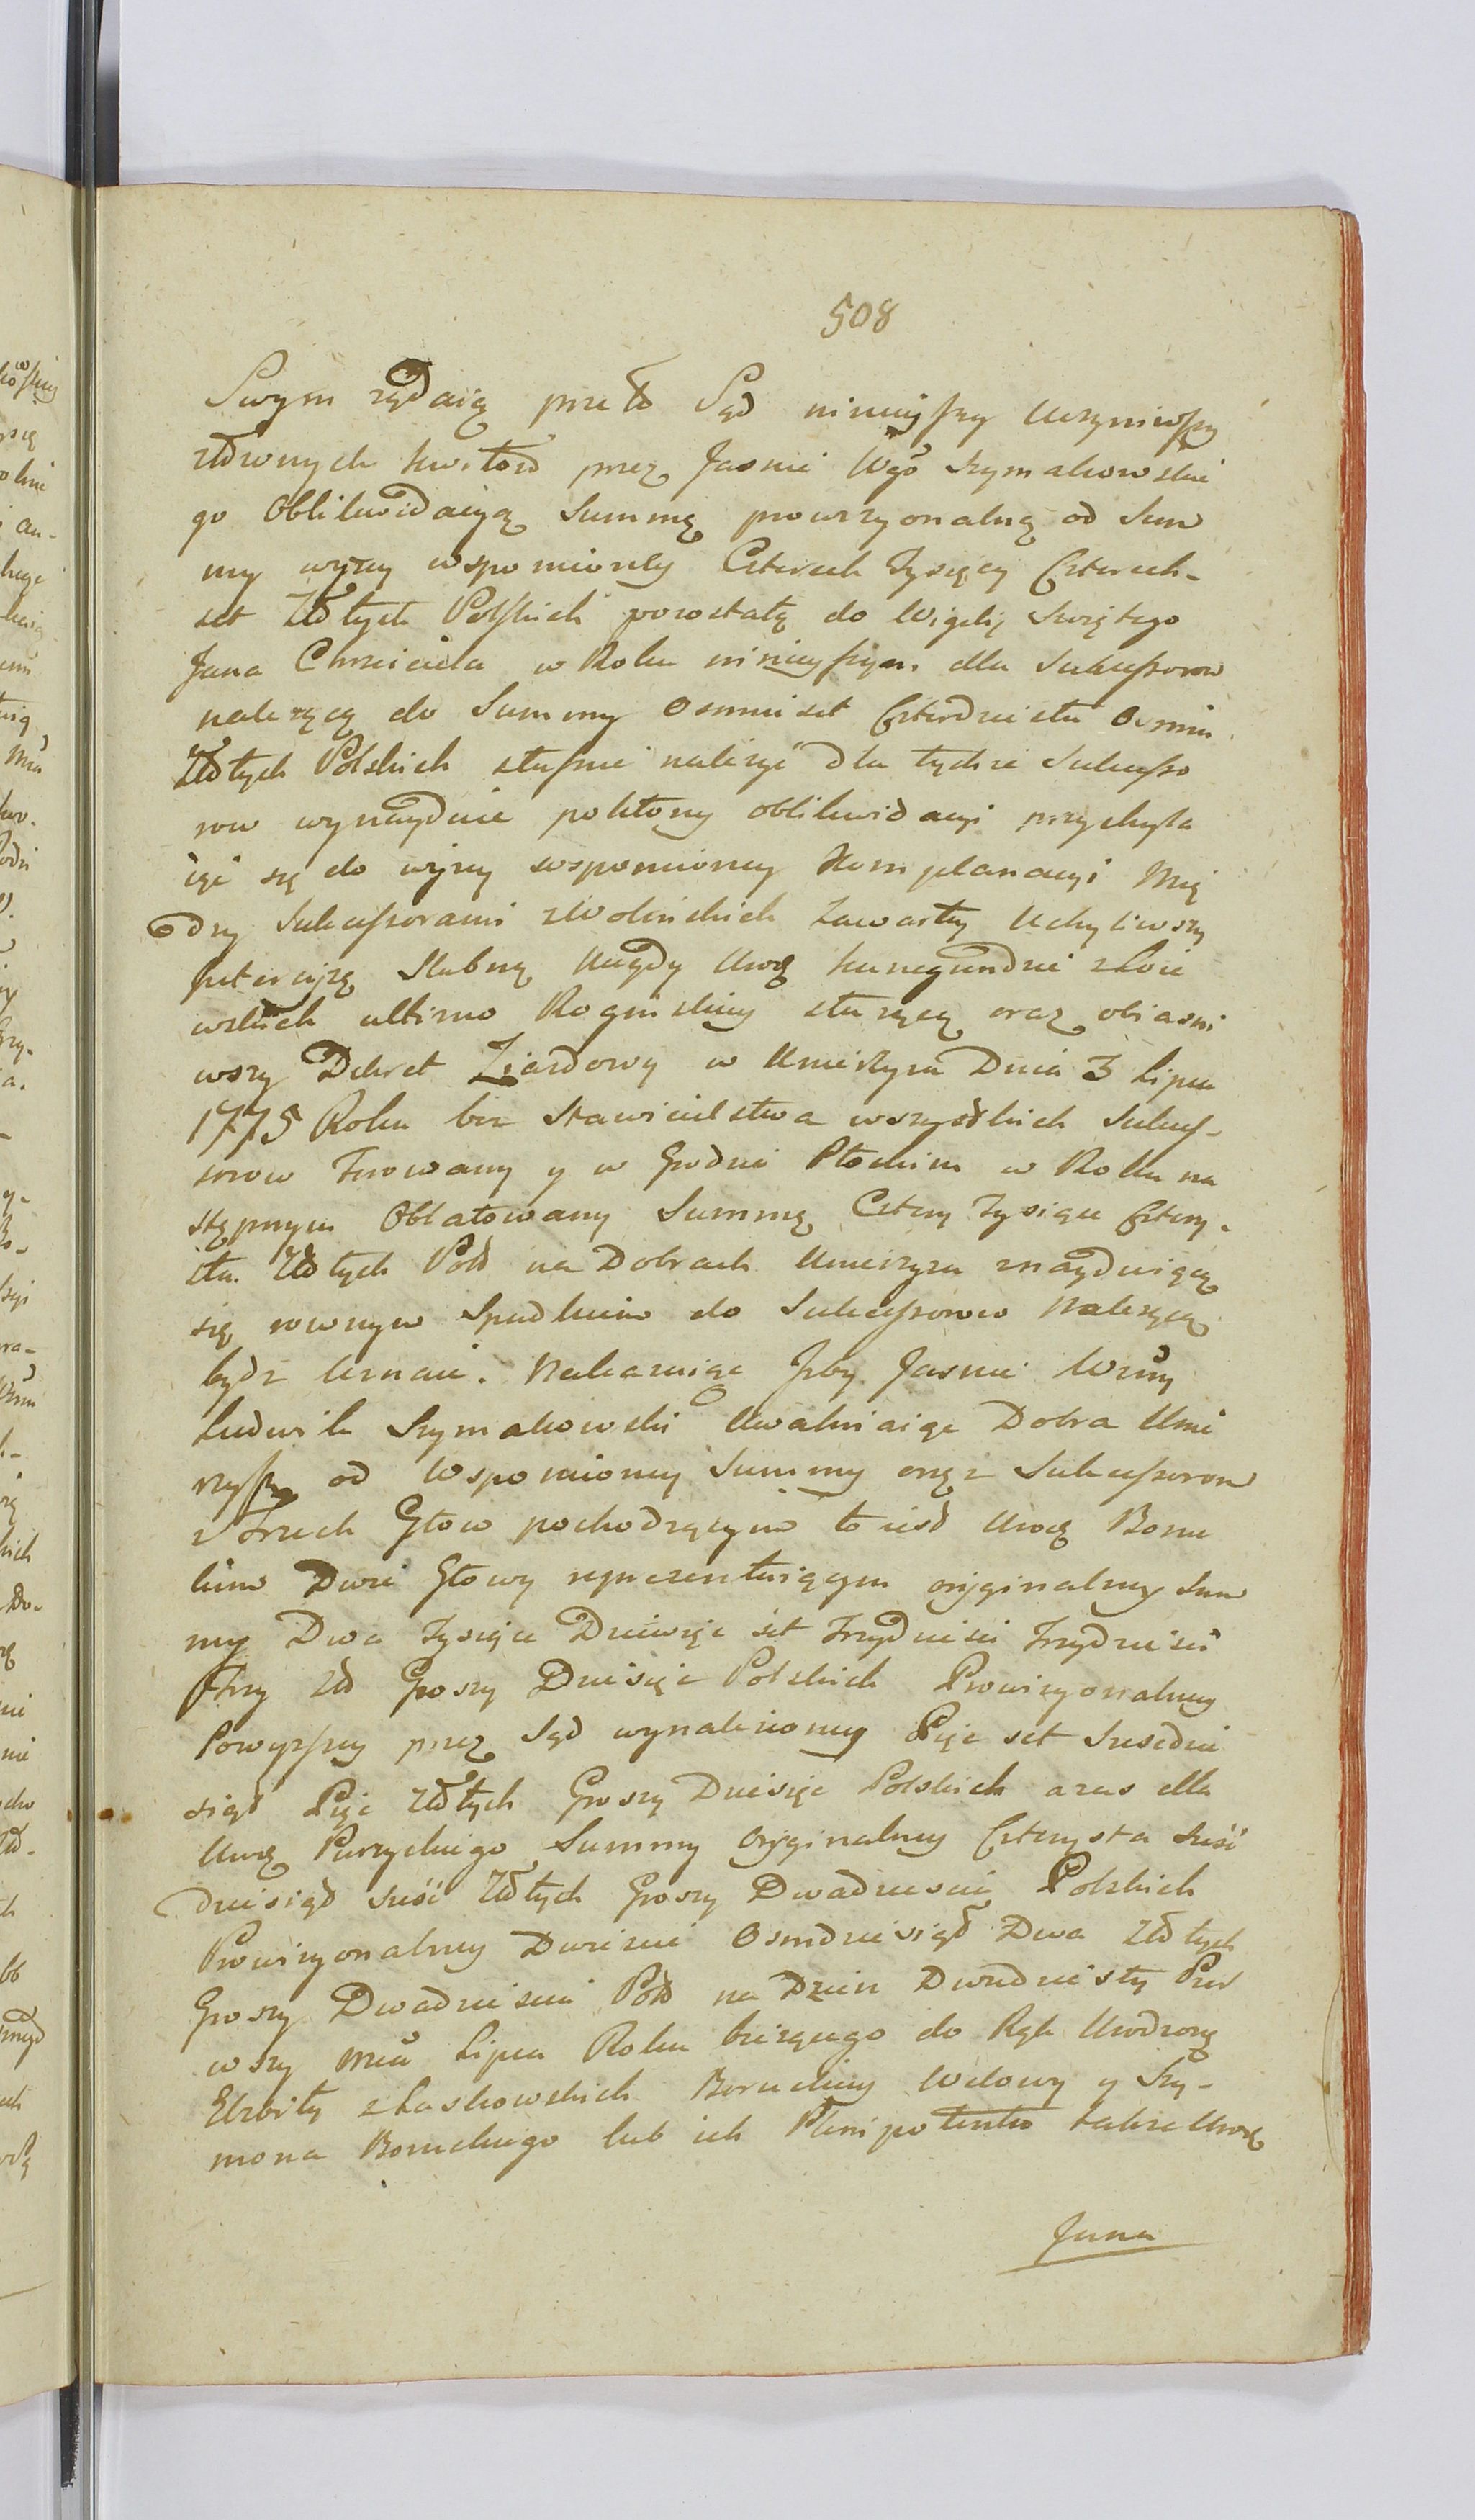 508
Swym żądaią prze to Sąd ninieyszy Uczyniwszy
złożonych kwitow przez Jasnie Wgo Szymakowskie
go Oblikwidacyą Summę prowizyonalną od Sum
my wyżey wspomnioney Czterech Tysięcy Czterech-
set Złłtych Polskich pozostałą do Wigilij Swiętego
Jana Chrzciciela w Roku ninieyszym dla Sukcessorow
należącą do Summy Osmiuset Czterdziestu Osmiu
Złłtych Polskich słusznie należyć dla tychże Sukcesso
row wynayduie położoney oblikwidacyi przychyla
iąc się do wyżey wspomnioney Komplanacyi Mię
dzy Sukcessorami z Wolinskich zawartey Uchyliwszy
Intercyzę Slubną niegdy Uroę Kunegundzie
ultimo Rogińskiey słuzącą oraz obiasni
wszy Dekret Ziazdowy w Umieszynie Dnia 3 Lipca
1775 Roku bez Stawicielstwa wszystkich Sukces-
sorow Ferowany y w Grodzie Płockim w Roku na
stępnym Oblatowany Summę Cztery Tysiące Cztery-
sta Złłtych Pols na Dobrach znayduiącą
się rownym Spadkiem do Sukcessorow Należącą
bydz Uznaie. Nakazuiąc Jżby Jasnie Wżny
Ludwik Szymakowski Uwalniaiąc Dobra
od Wspomnioney Summy onęż Sukcessorom
z Trzech Głow pochodzącym to iest Uroę Boru
ckim Dwie Głowy reprezentuiącym oryginalney Sum
my Dwa Tysiące Dziewięć set Trzydzieści Trzydzieści
Trzy Zł Groszy Dziesięć Polskich Prowizyonalney
Powyższey przez Sąd wynalezioney Pięć set Szesdzie
siąt Pięć Złłtych Groszy Dziesięć Polskich a zas dla
Uroę Summy Oryginalney Czterysta Sześć
dziesiąt sześć Złłtych Groszy Dwadzieścia Polskich
Prowizyonalney Dwieście Osmdziesiąt Dwa Złłtych
Groszy Dwadzieścia Pols na Dzień Dwudziesty Pier
wszy Mca Lipca Roku bieżącego do Rąk Urodzoną
Elzbity z Laskowskich Boruckiey Wdowy y Szy-
mona Boruckiego lub ich Plenipotenta także Uroę
Jana